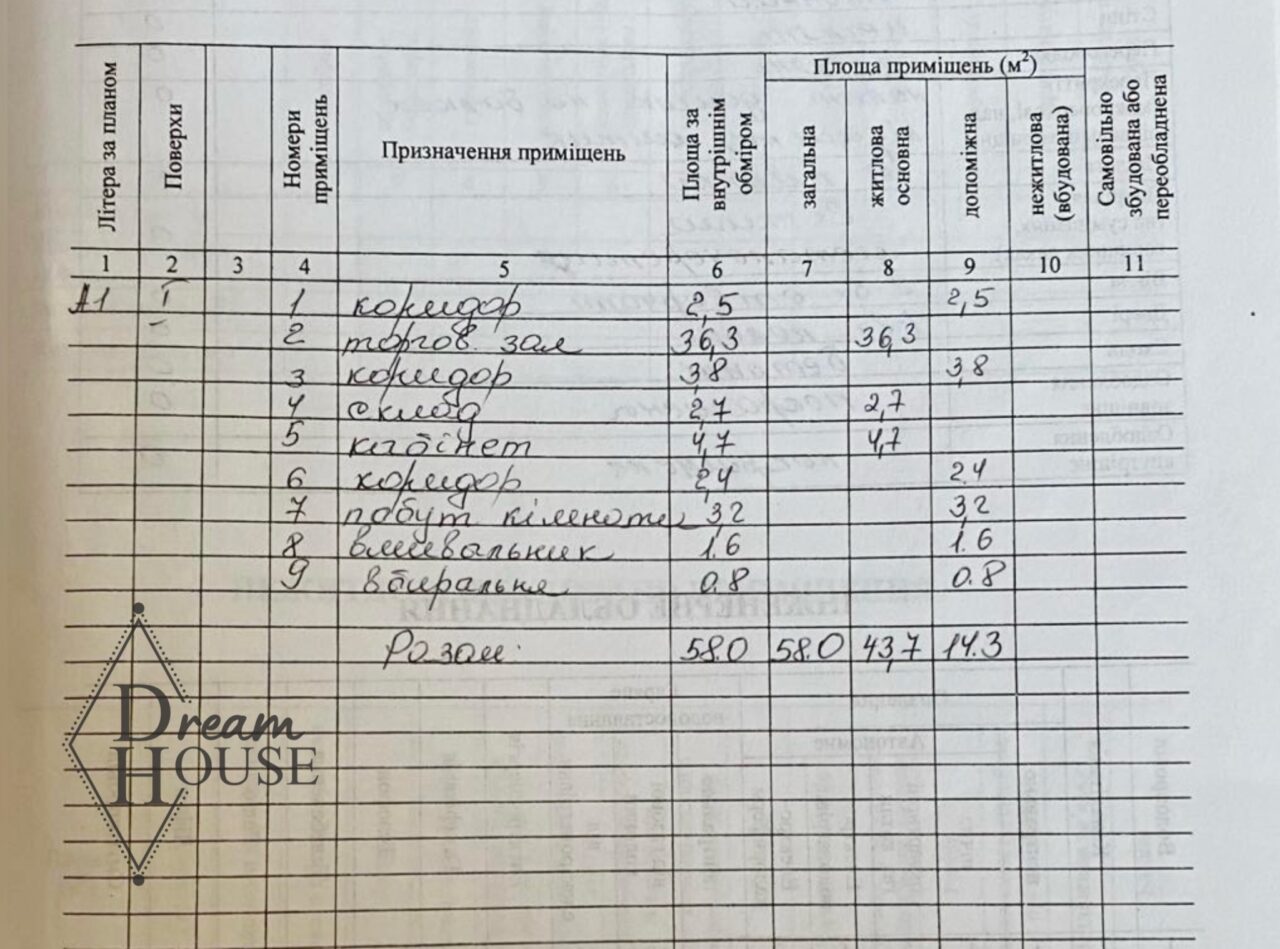 Літера за планом
Поверхи
Номери приміщень
Призначення приміщень
Площа за внутрішнім обміром
Площа приміщень (м²)
загальна
житлова основна
допоміжна
нежитлова (вбудована)
Самовільно збудована або переобладнена
1 2 3 4 5 6 7 8 9 10 11
A1 1 1 коридор 2,5 2,5
2 торгов. зал 36,3 36,3
3 коридор 3,8 3,8
4 склад 2,7 2,7
5 кабінет 4,7 4,7
6 коридор 2,4 2.4
7 побут кімната 3,2 3,2
8 вмивальник 1.6 1.6
9 вбиральня 0.8 0.8
Разом: 58.0 58.0 43,7 14.3
Dream
HOUSE
ІНЖЕНЕРНЕ ОБЛАДНАННЯ